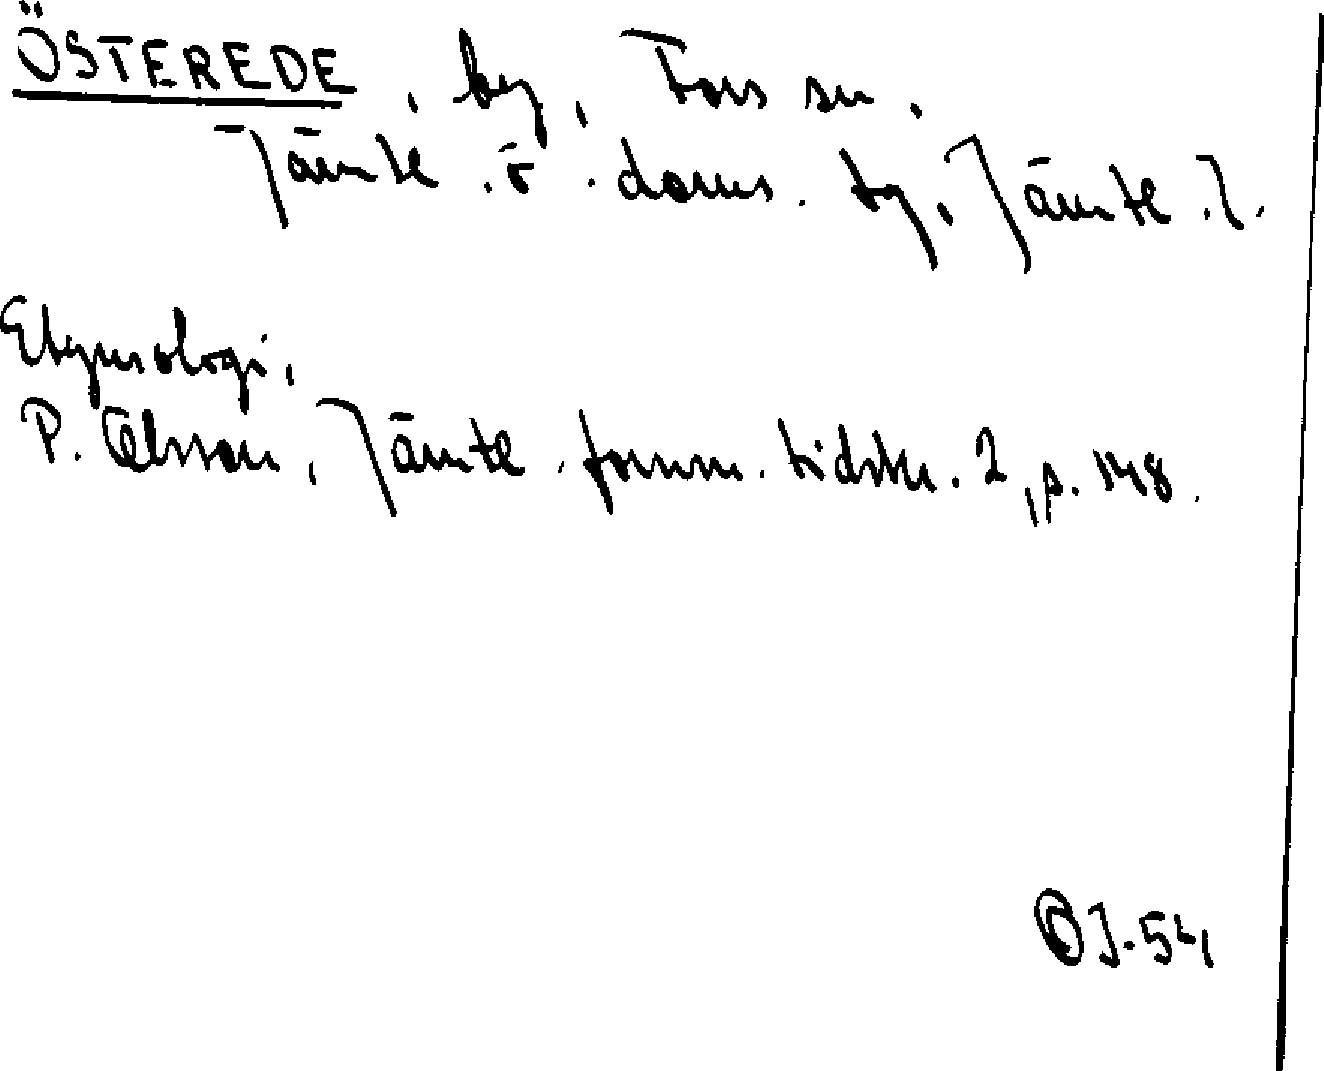 ÖSTEREDE, by, Fors sn,
Jämtl. ö. doms. tg, Jämtl. l.
Etymologi,
P. Olsson, Jämtl. fornm. tidskr. 2, p. 148.
OJ-54